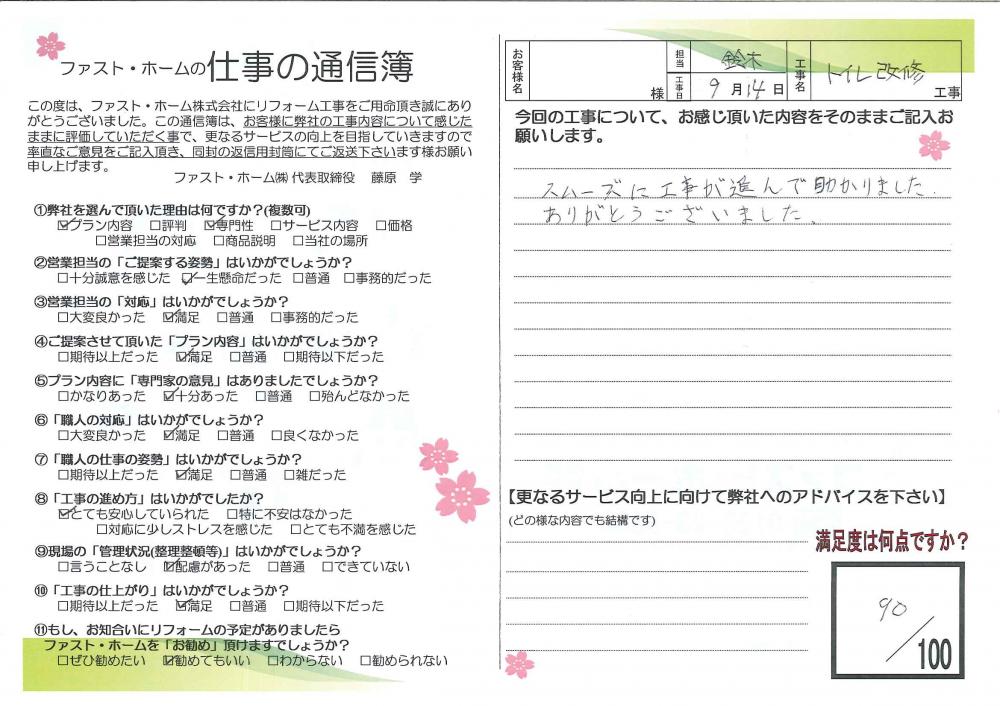 ファスト・ホームの仕事の通信簿
この度は、ファスト・ホーム株式会社にリフォーム工事をご用命頂き誠にあり
がとうございました。この通信簿は、お客様に弊社の工事内容について感じた
ままに評価していただく事で、更なるサービスの向上を目指していきますので
率直なご意見をご記入頂き、同封の返信用封筒にてご返送下さいます様お願い
申し上げます。
ファスト・ホーム㈱ 代表取締役 藤原 学
①弊社を選んで頂いた理由は何ですか?(複数可)
☑プラン内容 □評判 ☑専門性 □サービス内容 □価格
□営業担当の対応 □商品説明 □当社の場所
②営業担当の「ご提案する姿勢」はいかがでしょうか?
□十分誠意を感じた ☑一生懸命だった □普通 □事務的だった
③営業担当の「対応」はいかがでしょうか?
□大変良かった ☑満足 □普通 □事務的だった
④ご提案させて頂いた「プラン内容」はいかがでしょうか?
□期待以上だった ☑満足 □普通 □期待以下だった
⑤プラン内容に「専門家の意見」はありましたでしょうか?
□かなりあった ☑十分あった □普通 □殆んどなかった
⑥「職人の対応」はいかがでしょうか?
□大変良かった ☑満足 □普通 □良くなかった
⑦「職人の仕事の姿勢」はいかがでしょうか?
□期待以上だった ☑満足 □普通 □雑だった
⑧「工事の進め方」はいかがでしたか?
☑とても安心していられた □特に不安はなかった
□対応に少しストレスを感じた □とても不満を感じた
⑨現場の「管理状況(整理整頓等)」はいかがでしょうか?
□言うことなし ☑配慮があった □普通 □できていない
⑩「工事の仕上がり」はいかがでしょうか?
□期待以上だった ☑満足 □普通 □期待以下だった
⑪もし、お知合いにリフォームの予定がありましたら
ファスト・ホームを「お勧め」頂けますでしょうか?
□ぜひ勧めたい ☑勧めてもいい □わからない □勧められない
お客様名 様 担当 鈴木 工事日 9月14日 工事名 トイレ改修 工事
今回の工事について、お感じ頂いた内容をそのままご記入お
願いします。
スムーズに工事が進んで助かりました.
ありがとうございました.
【更なるサービス向上に向けて弊社へのアドバイスを下さい】
(どの様な内容でも結構です)
満足度は何点ですか?
90/100